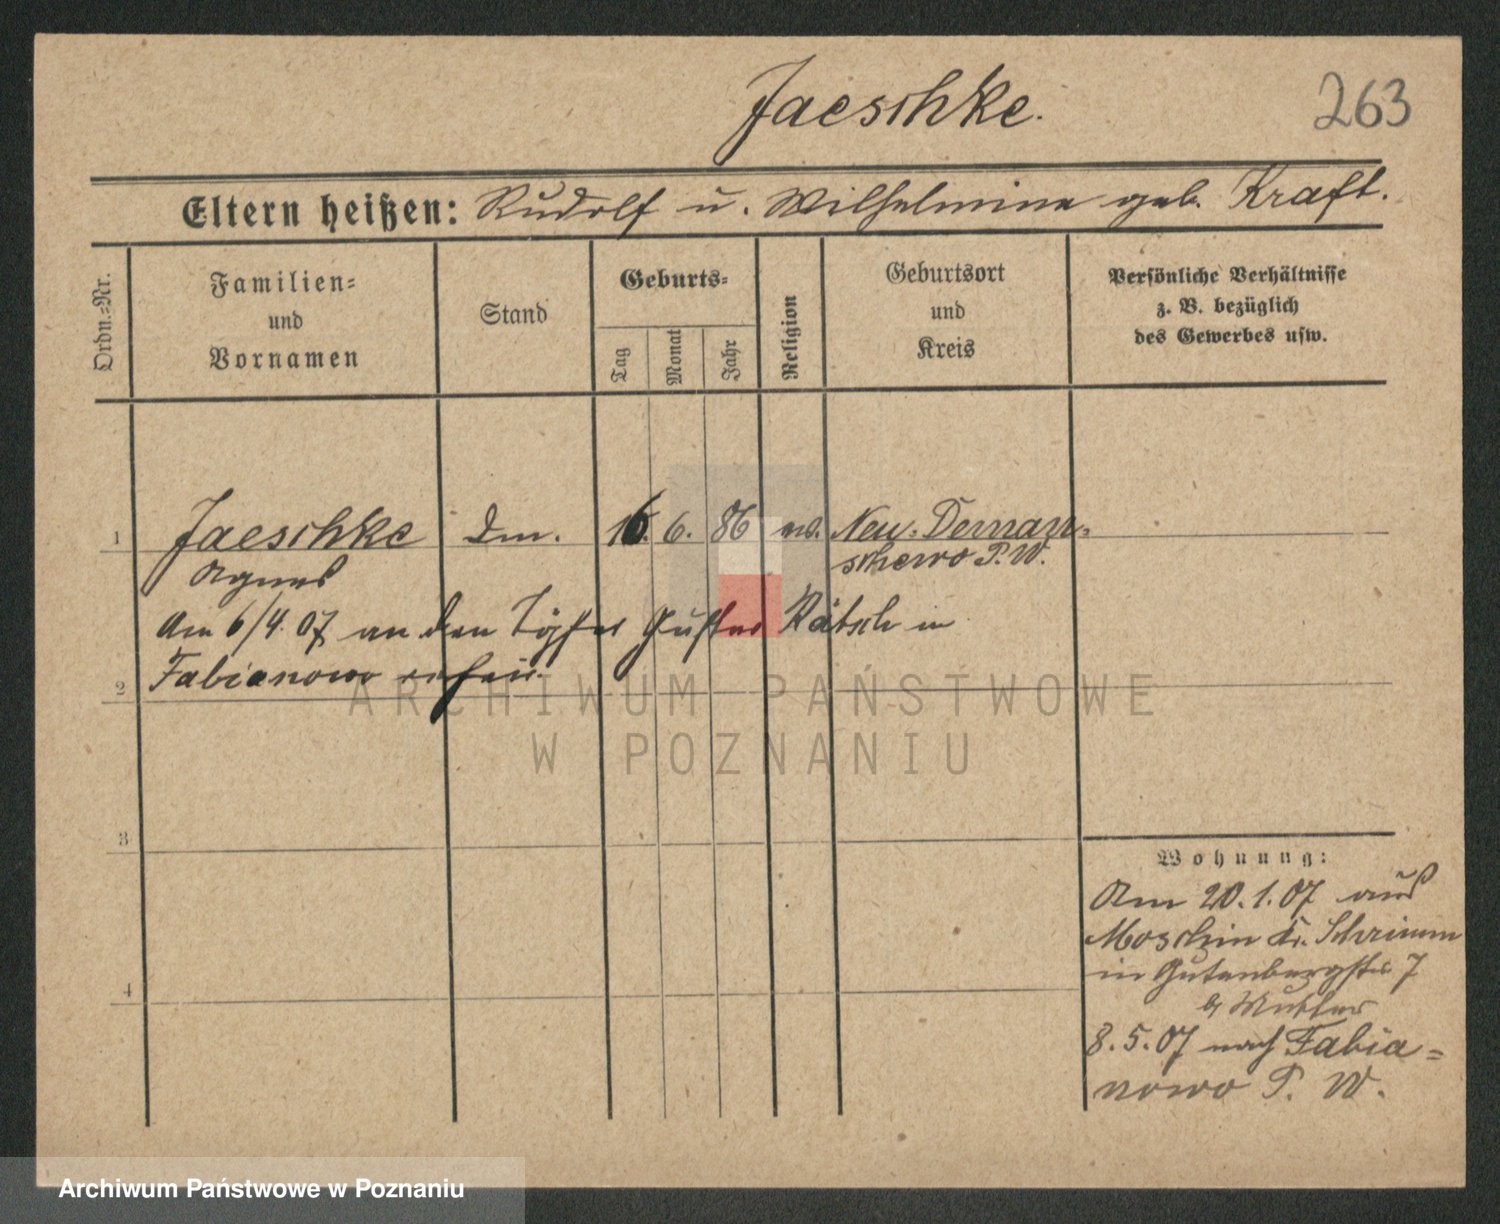 Jaeschke.
263
Eltern heißen: Rudolf u. Wilhelmine geb. Kraft.
Ordn.-Nr.
Familien-
und
Vornamen
Stand
Geburts-
Tag
Monat
Jahr
Religion
Geburtsort
und
Kreis
Persönliche Verhältnisse
z. B. bezüglich
des Gewerbes usw.
1 Jaeschke 16. 6. 86 ev. Neu-Deman-
Agnes schewo P. W.
Am 6/4. 07 an den Töpfer Gustav Rätsch in
Fabianowo
2
3
4
Wohnung:
Am 20.1.07 aus
Moschin Kr. Schrimm
in Gutenbergstr 7
b Mutter
8.5.07 nach Fabia-
nowo P. W.
ARCHIWUM PAŃSTWOWE
W POZNANIU
Archiwum Państwowe w Poznaniu